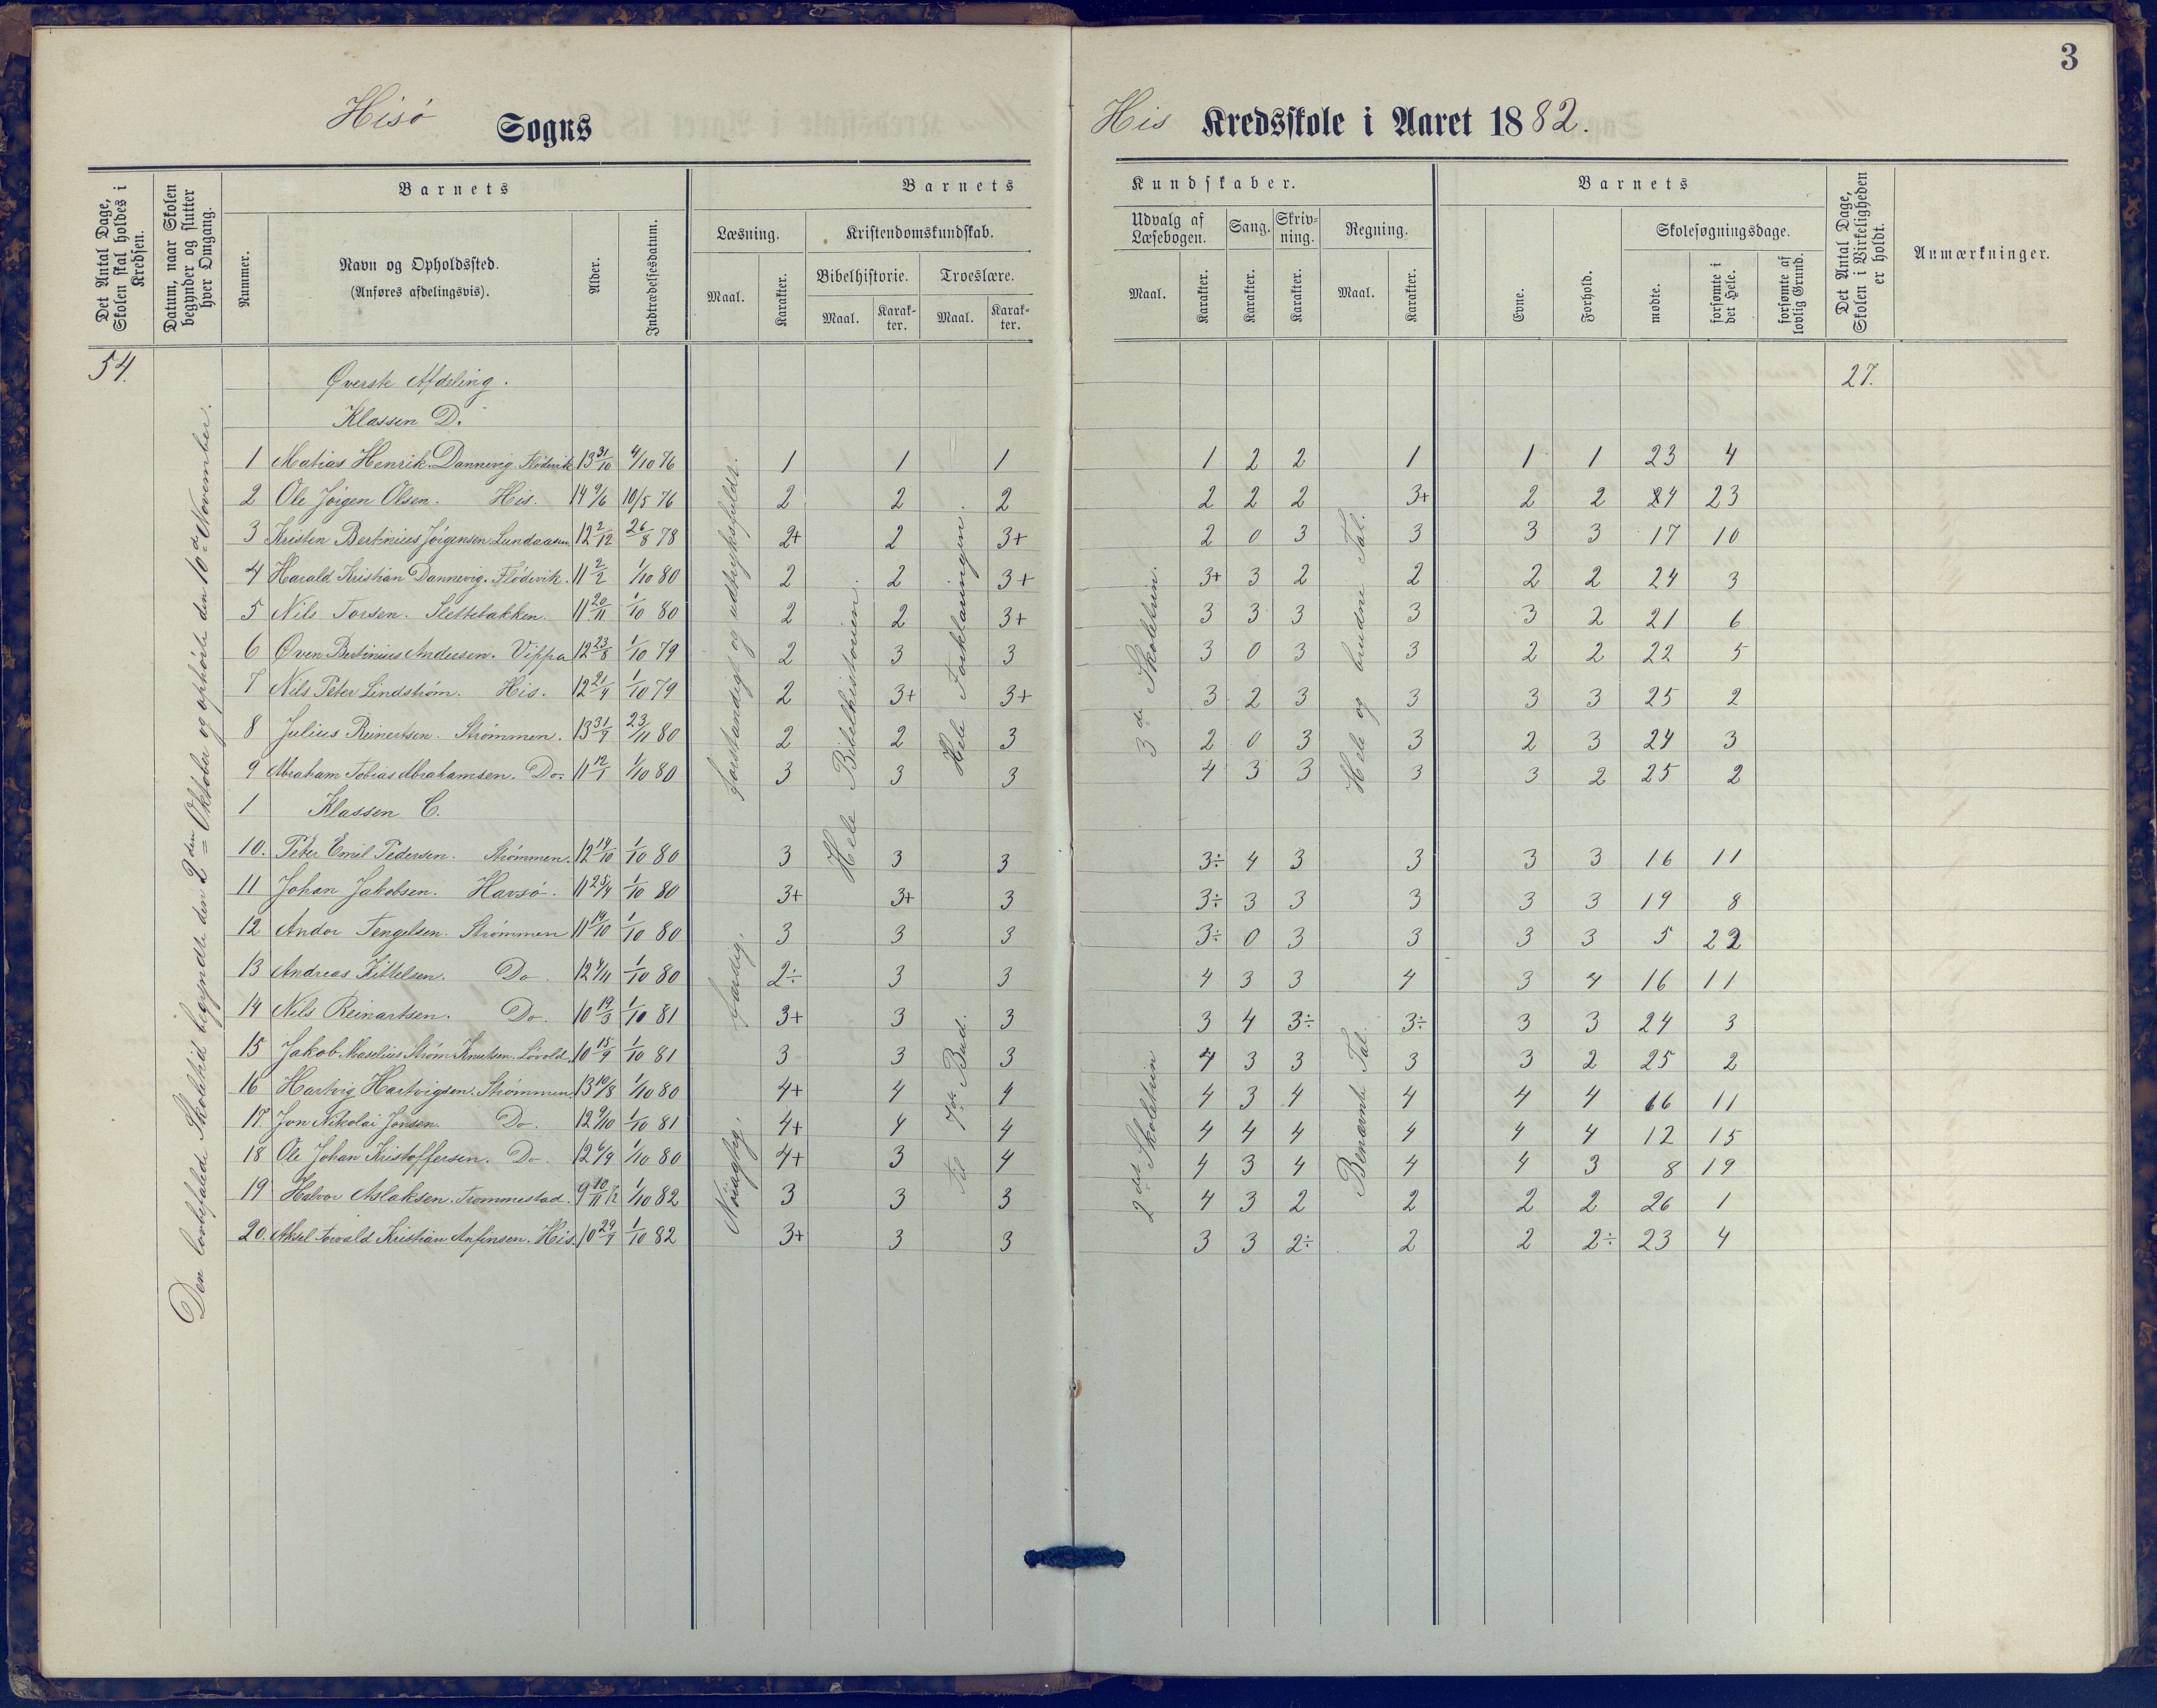 3
Hisö Sogns His Kredsskole i Aaret 1882.
Det Antal Dage, Skolen skal holdes i Kredsen.
Datum, naar Skolen begynder og slutter hver Omgang.
Barnets
Nummer.
Navn og Opholdssted.
(Anføres afdelingsvis).
Alder.
Indtrædelsesdatum.
Barnets Kundskaber.
Læsning.
Maal. Karakter.
Kristendomskundskab.
Bibelhistorie.
Maal. Karak-ter.
Troeslære.
Maal. Karak-ter.
Udvalg af Læsebogen.
Maal. Karakter.
Sang.
Karakter.
Skriv-ning.
Karakter.
Regning.
Maal. Karakter.
Barnets
Evne. Forhold.
Skolesøgningsdage.
mødte. forsømte i det Hele. forsømte af lovlig Grund.
Det Antal Dage, Skolen i Virkeligheden er holdt.
Anmærkninger.
54.
27.
Den lovbefalede Skoletid begyndte den 2den Oktober og ophørte den 10de November.
Øverste Afdeling.
Klassen D.
1 Matias Henrik Dannevig. Flödevik 13 31/10 4/10 76 1 1 1 1 2 2 1 1 1 23 4
2 Ole Jörgen Olsen. His. 14 9/6 10/5 76 2 2 2 2 2 2 3+ 2 2 24 23
3 Kristen Bertinius Jörgensen. Lundaasen 12 2/12 26/8 78 2+ 2 3+ 2 0 3 3 3 3 17 10
4 Harald Kristian Dannevig. Flödevik. 11 2/2 1/10 80 2 2 3+ 3+ 3 2 2 2 2 24 3
5 Nils Torsen. Slettebakken. 11 20/11 1/10 80 2 2 3+ 3 3 3 3 3 2 21 6
6 Oven Bertinius Andersen. Vippa 12 23/8 1/10 79 2 3 3 3 0 3 3 2 2 22 5
7 Nils Peter Lindstrøm. His. 12 21/4 1/10 79 2 3+ 3+ 3 2 3 3 3 3 25 2
8 Julius Reinertsen. Strømmen. 13 31/7 23/11 80 2 2 3 2 0 3 3 2 3 24 3
9 Abraham Tobias Abrahamsen. Do. 11 12/1 1/10 80 3 3 3 4 3 3 3 3 2 25 2
1 Klassen C.
10. Peter Emil Pedersen. Strømmen. 12 14/10 1/10 80 3 3 3 3÷ 4 3 3 3 3 16 11
11 Johan Jakobsen. Havsö. 11 25/4 1/10 80 3+ 3+ 3 3÷ 3 3 3 3 3 19 8
12 Andor Tengelsen. Strømmen 11 14/10 1/10 80 3 3 3 3÷ 0 3 3 3 3 5 22
13 Andreas Kittelsen. Do 12 4/11 1/10 80 2÷ 3 3 4 3 3 4 3 4 16 11
14 Nils Reinartsen. Do. 10 19/3 1/10 81 3+ 3 3 3 4 3÷ 3÷ 3 3 24 3
15 Jakob Maselius Strøm Knutsen. Lövold. 10 15/9 1/10 81 3 3 3 4 3 3 3 3 2 25 2
16 Hartvig Hartvigsen. Strømmen. 13 10/8 1/10 80 4+ 4 4 4 3 4 4 4 4 16 11
17. Jon Nikolai Jonsen. Do. 12 9/10 1/10 81 4+ 4 4 4 4 4 4 4 4 12 15
18 Ole Johan Kristoffersen. Do 12 6/9 1/10 80 4+ 3 4 4 3 4 4 4 3 8 19
19 Halvor Aslaksen. Trommestad. 9 10/11 1/10 82 3 3 3 4 3 2 2 2 2 26 1
20. Aksel Torvald Kristian Anfinsen. His. 10 29/7 1/10 82 3+ 3 3 3 3 2÷ 2 2 2÷ 23 4
Forstandigt og udtryksfuldt.
Færdig.
Nöiagtig.
Hele Bibelhistorien.
Hele Forklaringen.
Til 7de Bud.
3de Skoletrin.
2det Skoletrin
Hele og brudne Tal.
Benævnte Tal.